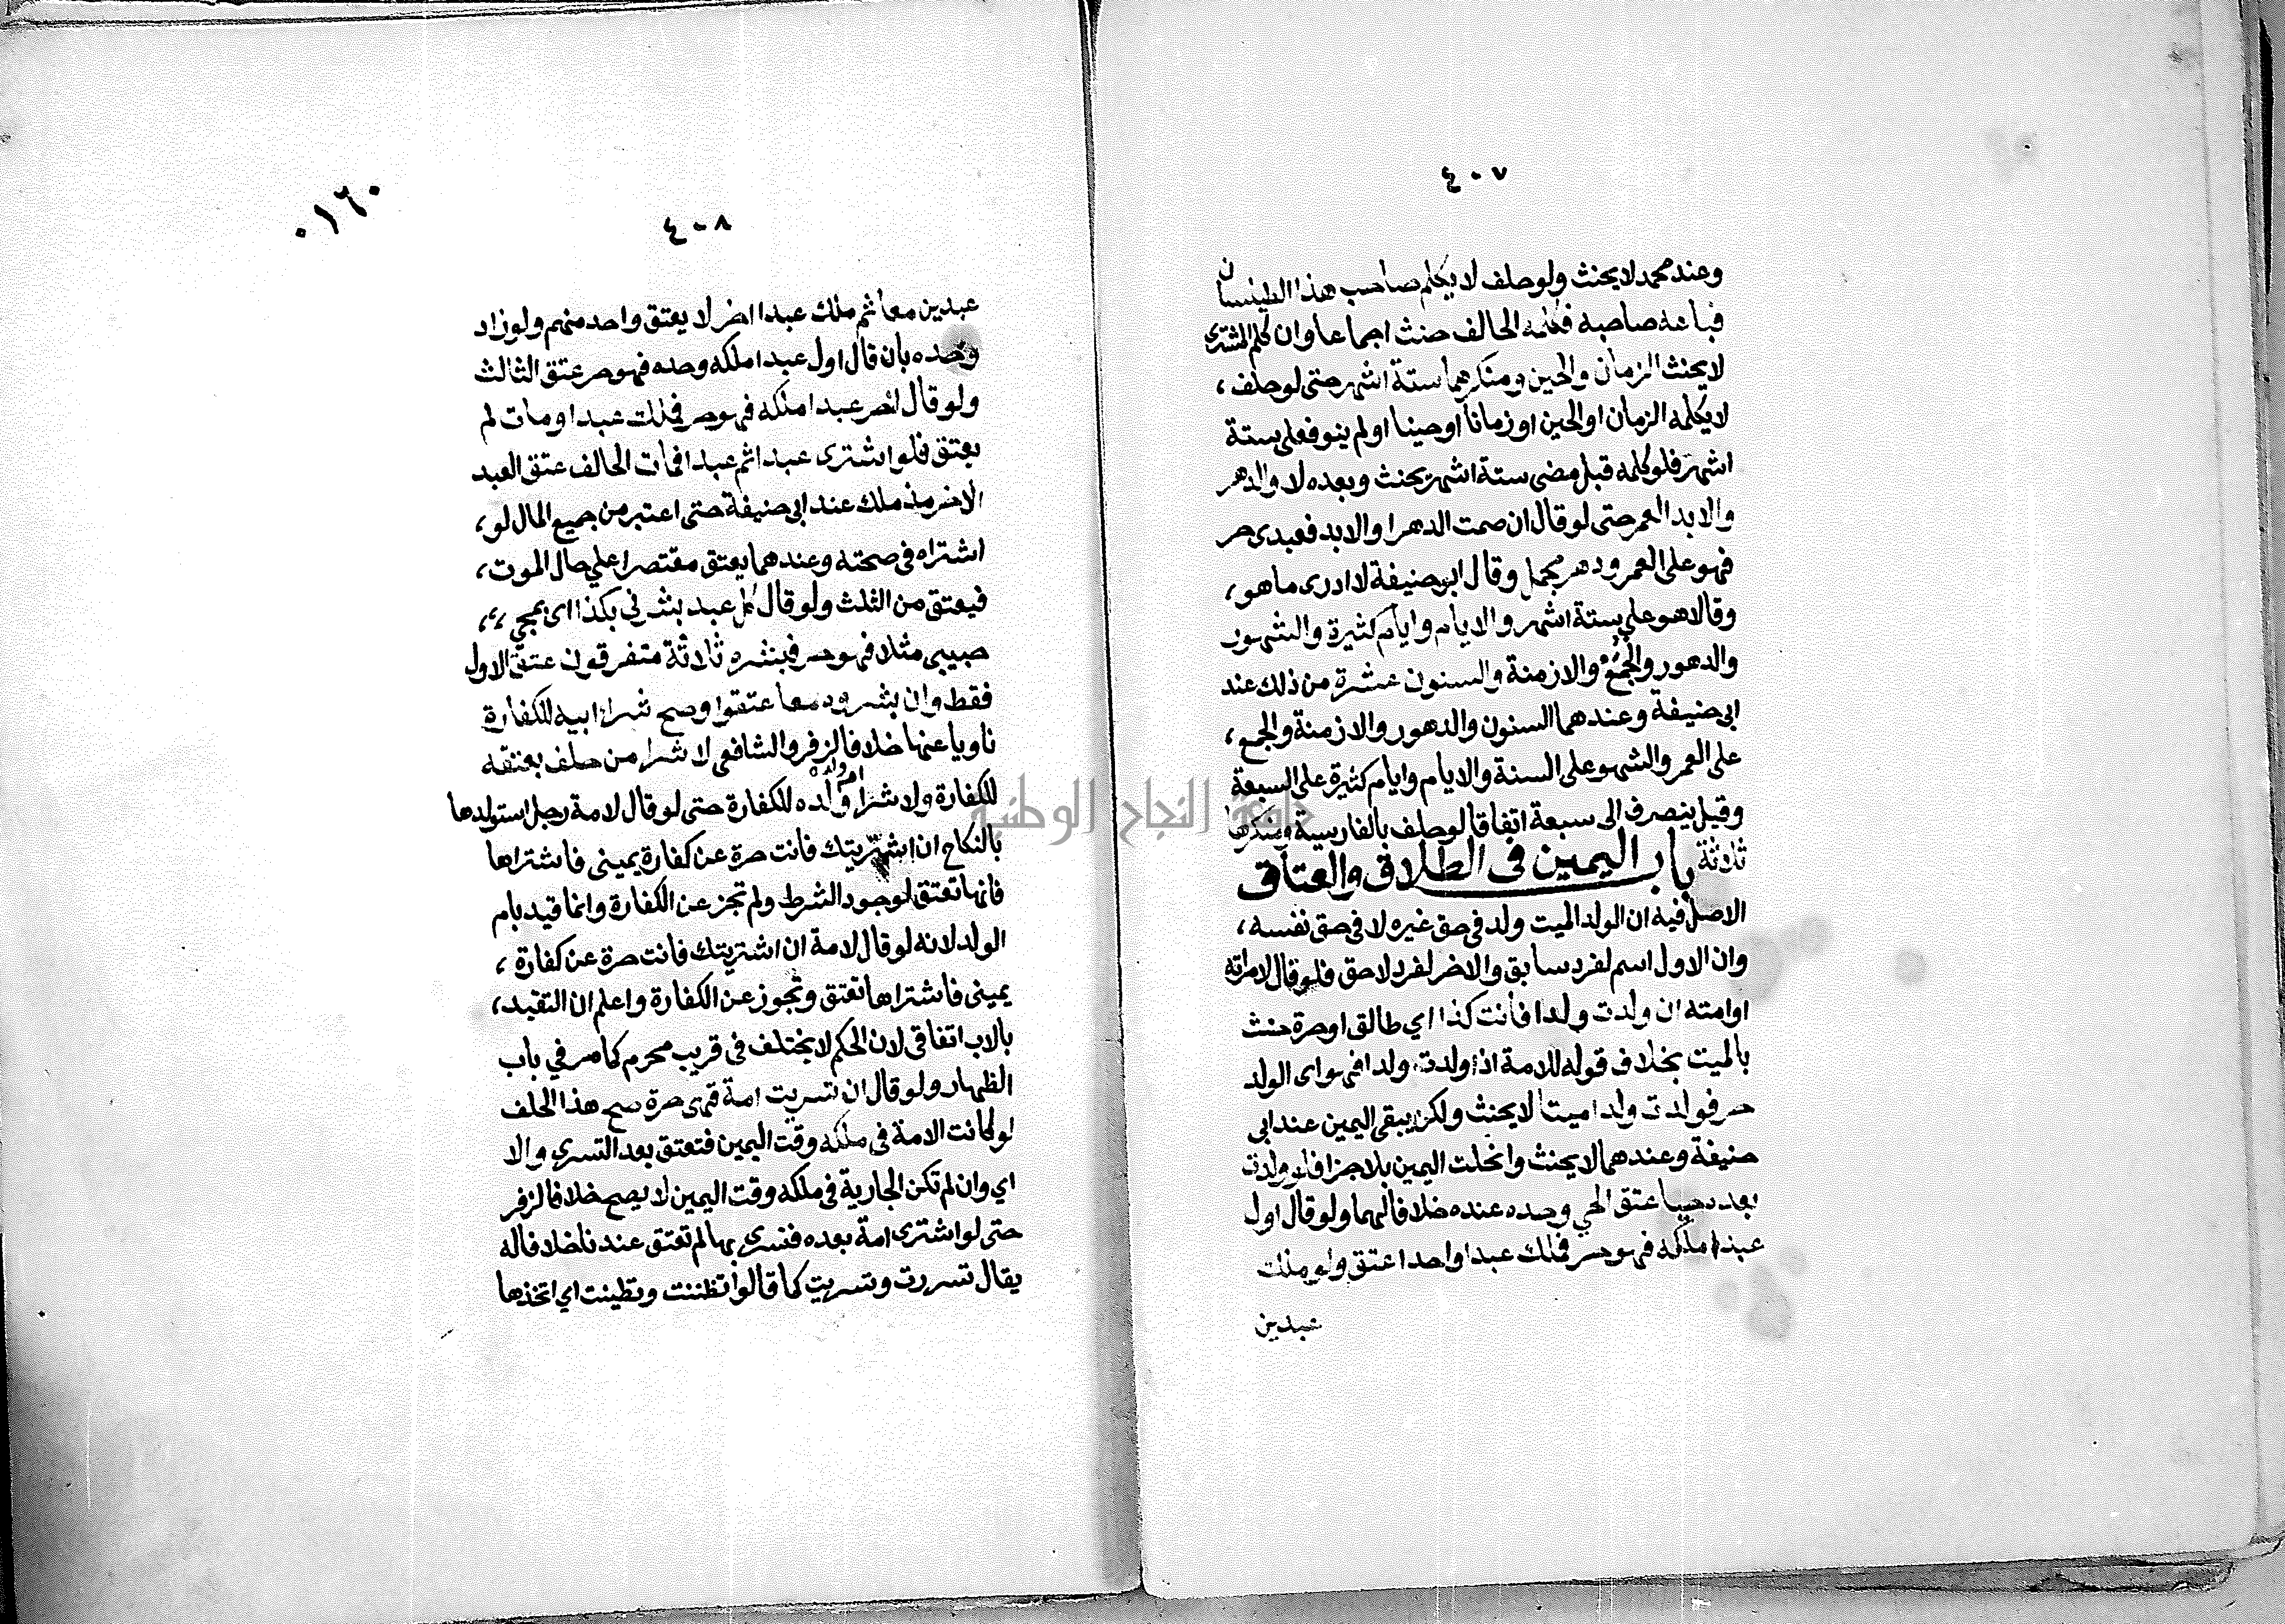 ٤٠٧
وعند محمد لا يحنث ولو حلف لا يكلم صاحب هذا الطيلسان
فباعه صاحبه فكلمه الحالف حنث اجماعا وان كلم المشترى
لا يحنث الزمان والحين ومنكرهما ستة اشهر حتى لو حلف ،
لا يكلمه الزمان او الحين او زمانا او حينا او لم ينو فعلى ستة
اشهر فلو كلمه قبل مضى ستة اشهر يحنث وبعده لا والدهر
والابد العمر حتى لو قال ان صمت الدهر او الابد فعبدى حر
فهو على العمر ودهر مجمل وقال ابو حنيفة لا ادرى ما هو ،
وقالا هو على ستة اشهر والايام وايام كثيرة والشهور
والدهور والجمع والازمنة والسنون عشرة من ذلك عند
ابى حنيفة وعندهما السنون والدهور والازمنة والجمع ،
على العمر والشهو على السنة والايام وايام كثيرة على السبعة
وقيل ينصرف الى سبعة اتفاقا لو حلف بالفارسية ومنكرها
ثلاثة باب اليمين فى الطلاق والعتاق
الاصل فيه ان الولد الميت ولد فى حق غيره لا فى حق نفسه ،
وان الاول اسم لفرد سابق والاخر لفرد لاحق فلو قال لامراته
او امته ان ولدت ولدا فانت كذا اي طالق او حرة حنث
بالميت بخلاف قوله للامة اذا ولدت ولدا فهو اى الولد
حر فولدت ولدا ميتا لا يحنث ولكن يبقى اليمين عند ابى
حنيفة وعندهما لا يحنث وانحلت اليمين بلا جزا فلو ولدت
بعده حيا عتق الحي وحده عنده خلافا لهما ولو قال اول
عبد املكه فهو حر فملك عبدا واحدا عتق ولو ملك
عبدين
٤٠٨
٠١٦٠
عبدين معا ثم ملك عبدا اخر لا يعتق واحد منهم ولو زاد
وحده بان قال اول عبد املكه وحده فهو حر عتق الثالث
ولو قال اخر عبد املكه فهو حر فملك عبدا ومات لم
يعتق فلو اشترى عبدا ثم عبدا فمات الحالف عتق العبد
الاخر مذ ملك عند ابى حنيفة حتى اعتبر من جميع المال لو ،
اشتراه فى صحته وعندهما يعتق مقتصرا على حال الموت ،
فيعتق من الثلث ولو قال كل عبد بشرنى بكذا اى بمجي ،،
حبيبى مثلا فهو حر فبشره ثلاثة متفرقون عتق الاول
فقط وان بشروه معا عتقوا وصح شراء ابيه للكفارة
ناويا عنها خلافا لزفر والشافعى لا شرا من حلف بعتقه
للكفارة ولا شرا ام ولده للكفارة حتى لو قال لامة رجل استولدها
بالنكاح ان اشتريتك فانت حرة عن كفارة يمينى فاشتراها
فانها تعتق لوجود الشرط ولم تجز عن الكفارة وانما قيد بام
الولد لانه لو قال لامة ان اشتريتك فانت حرة عن كفارة ،
يمينى فاشتراها تعتق وتجوز عن الكفارة واعلم ان التقيد ،
بالاب اتفاقى لان الحكم لا يختلف فى قريب محرم كما مر في باب
الظهار ولو قال ان تسريت امة فهى حرة صح هذا الحلف
لو كانت الامة فى ملكه وقت اليمين فتعتق بعد التسري والا
اي وان لم تكن الجارية فى ملكه وقت اليمين لا يصح خلافا لزفر
حتى لو اشترى امة بعده فتسرى بها لم تعتق عندنا خلافا له
يقال تسررت وتسريت كما قالوا تظننت وتظنيت اي اتخذها
جامعة النجاح الوطنية